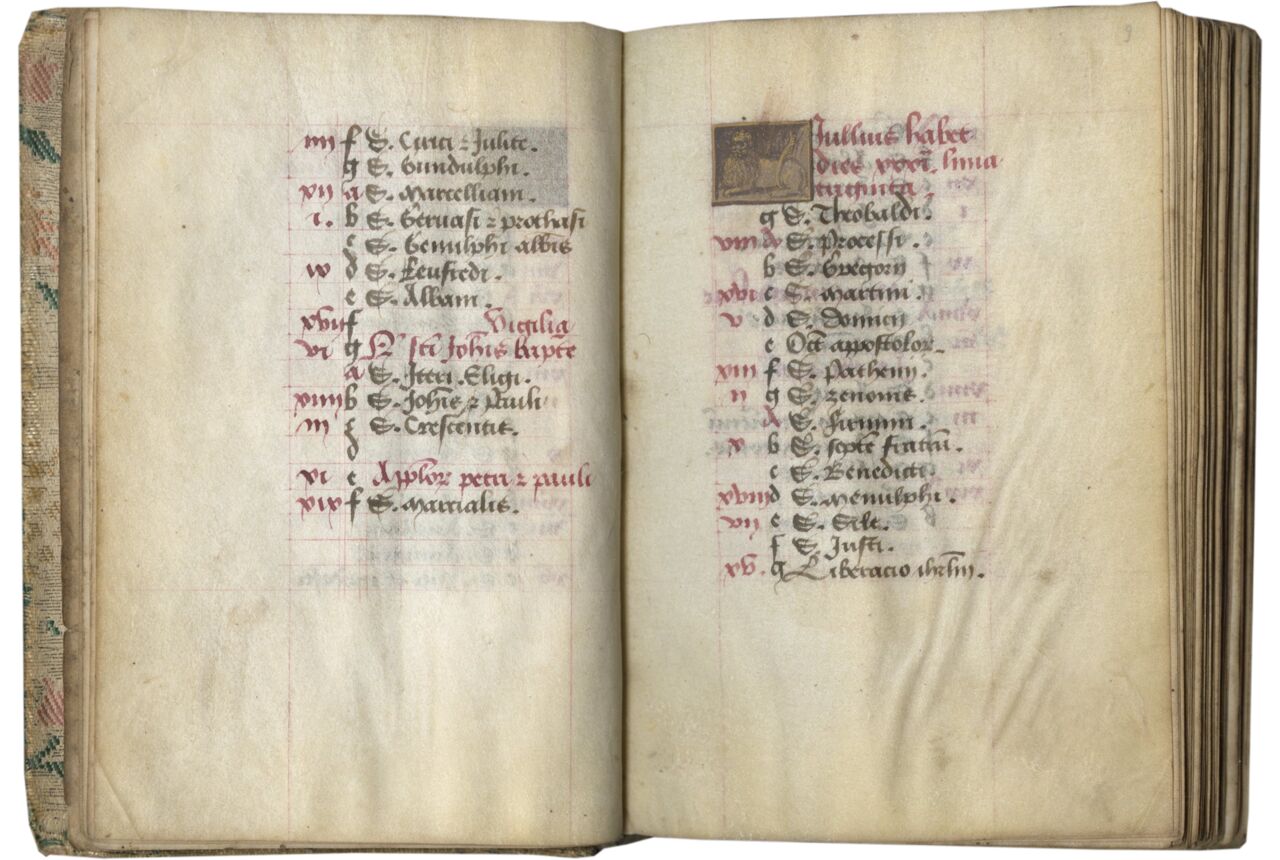 iiii f S. Cirici ⁊ Julite.
g S. Gundulphi.
xii a S. Marcelliani.
i. b S. Gervasi ⁊ prothasi
c S. Genulphi abbis
ix d S. Leufredi.
e S. Albani.
xvii f Vigilia
vi g N sci Johis bapte
a S. Eligi.
xiiii b S. Johis ⁊ Pauli
iii c S. Crescentis.
d
vi e Applor petri ⁊ pauli
xix f S. Marcialis.
9
Jullius habet
dies xxxi. luna
triginta.
g S. Theobaldi.
viii A S. Processi.
b S. Gregorii
xvi c S. Martini.
v d S. Domicii
e Oct appostolor.
xiii f S. Pathenii.
ii g S. zenonis.
A S. Firmini.
x b S. septe fratru.
c S. Benedicti.
xviii d S. Menulphi.
vii e S. Sile.
f S. Justi.
xv. g Liberacio ihrlm.